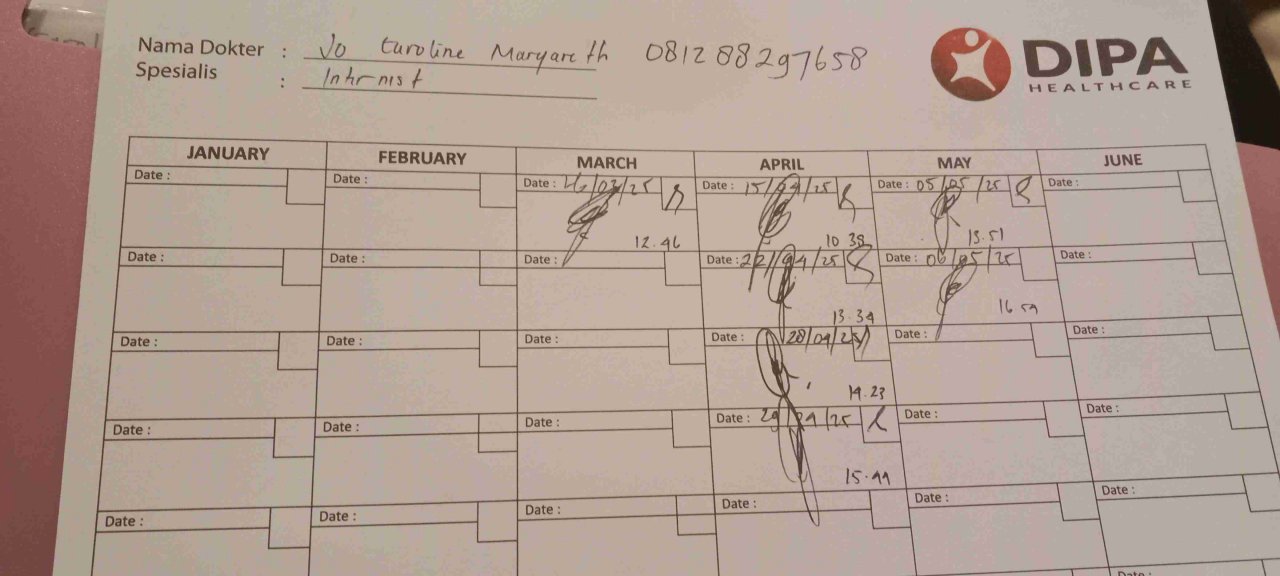 Nama Dokter : Jo Caroline Margareth 081288297658
Spesialis : Internist
DIPA
HEALTHCARE
JANUARY FEBRUARY MARCH APRIL MAY JUNE
Date : Date : Date : /03/25 Date : 15/04/25 Date : 05/05/25 Date :
12.46 10.38 13.51
Date : Date : Date : Date : 22/04/25 Date : 06/05/25 Date :
13.34 16.59
Date : Date : Date : Date : 28/04/25 Date : Date :
14.23
Date : Date : Date : Date : 29/04/25 Date : Date :
15.44
Date : Date : Date : Date : Date : Date :
Date :